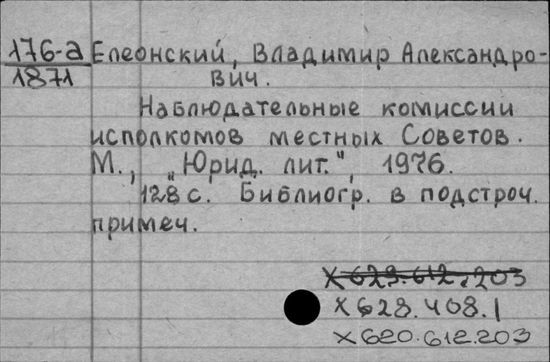 176-а Елеонский, Владимир Александро-
1871 вич.
Наблюдательные комиссии
исполкомов местных Советов.
М., „Юрид. лит.", 1976.
128 с. Библиогр. в подстроч.
примеч.
Х 623.612.203
Х 628.408.1
Х 620.612.203